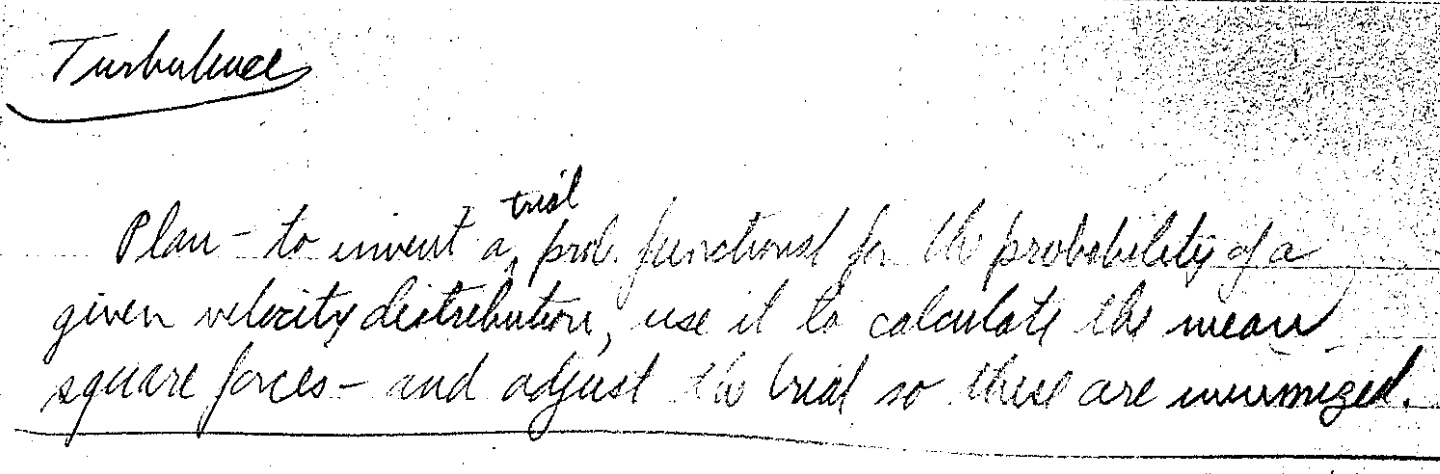 Turbulence
Plan - to invent a trial prob. functional for the probability of a
given velocity distribution, use it to calculate the mean
square forces - and adjust the trial so these are minimized.